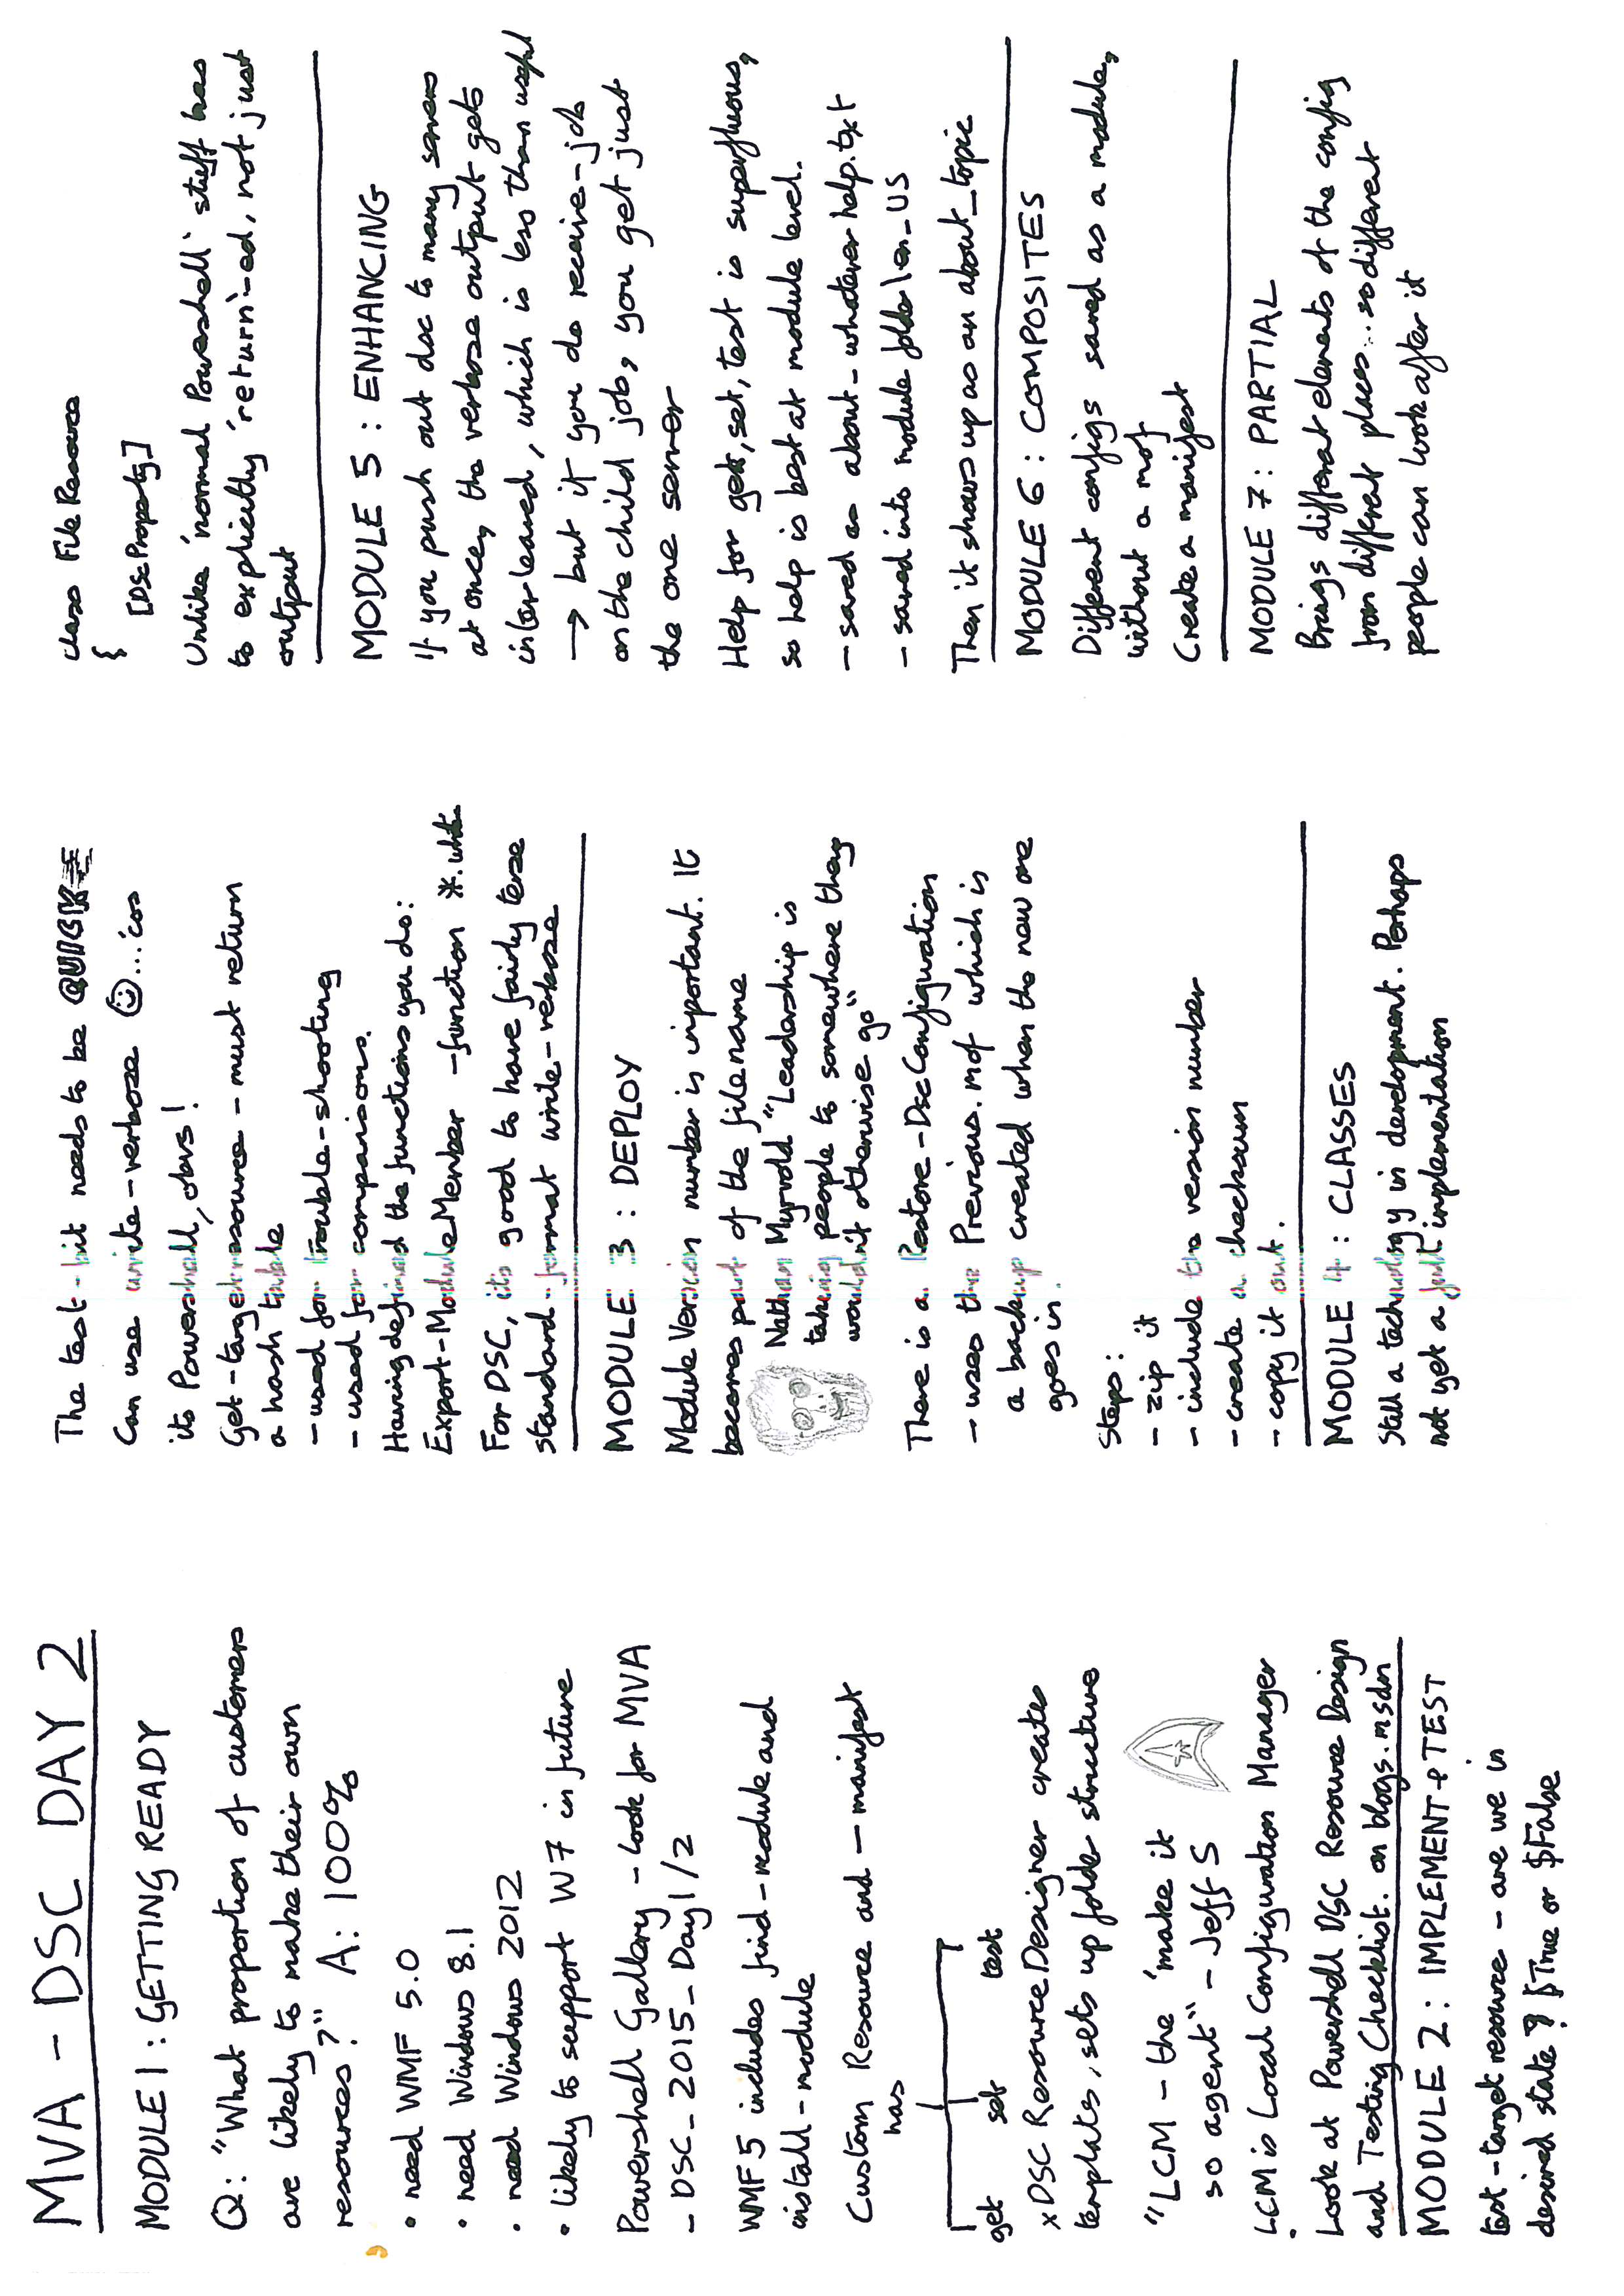 MVA - DSC DAY 2
MODULE 1 : GETTING READY
Q: "What proportion of customers
are likely to make their own
resources?" A: 100%
• need WMF 5.0
• need Windows 8.1
• need Windows 2012
• likely to support W7 in future
Powershell Gallery - look for MVA
_ DSC_ 2015_ Day1/2
WMF5 includes find-module and
install-module
Custom Resource and - manifest
has
get set test
xDSC Resource Designer creates
templates, sets up folder structure
"LCM - the 'make it
so agent" - Jeff S
LCM is Local Configuration Manager
Look at Powershell DSC Resource Design
and Testing Checklist. on blogs.msdn
MODULE 2 : IMPLEMENT & TEST
test-target resource - are we in
desired state? $True or $False
The test-bit needs to be QUICK
Can use write-verbose ☺...'cos
its Powershell, obvs!
Get-targetresource - must return
a hash table
- used for trouble-shooting
- used for comparisons.
Having defined the functions you do:
Export-ModuleMember -function *.
For DSC, its good to have fairly terse
standard-format write-verbose
MODULE 3 : DEPLOY
Module Version number is important. It
becomes part of the filename
Nathan Myrvold "Leadership is
taking people to somewhere they
wouldn't otherwise go"
There is a Restore-DscConfiguration
- uses the Previous.mof which is
a backup created when the new one
goes in.
Steps:
- zip it
- include the version number
- create a checksum
- copy it out.
MODULE 4 : CLASSES
Still a technology in development. Perhaps
not yet a full implementation
class FileResource
{
[DscProperty]
Unlike 'normal Powershell' stuff has
to explicitly 'return'-ed, not just
output
MODULE 5 : ENHANCING
If you push out dsc to many servers
at once, the verbose output gets
interleaved, which is less than useful
→ but if you do receive-job
on the child job, you get just
the one server
Help for get, set, test is superfluous,
so help is best at module level.
- saved as about_whatever help.txt
- saved into module folder\en_US
Then it shows up as an about_topic
MODULE 6 : COMPOSITES
Different configs saved as a module,
without a mof
Create a manifest
MODULE 7 : PARTIAL
Brings different elements of the config
from different places...so different
people can look after it